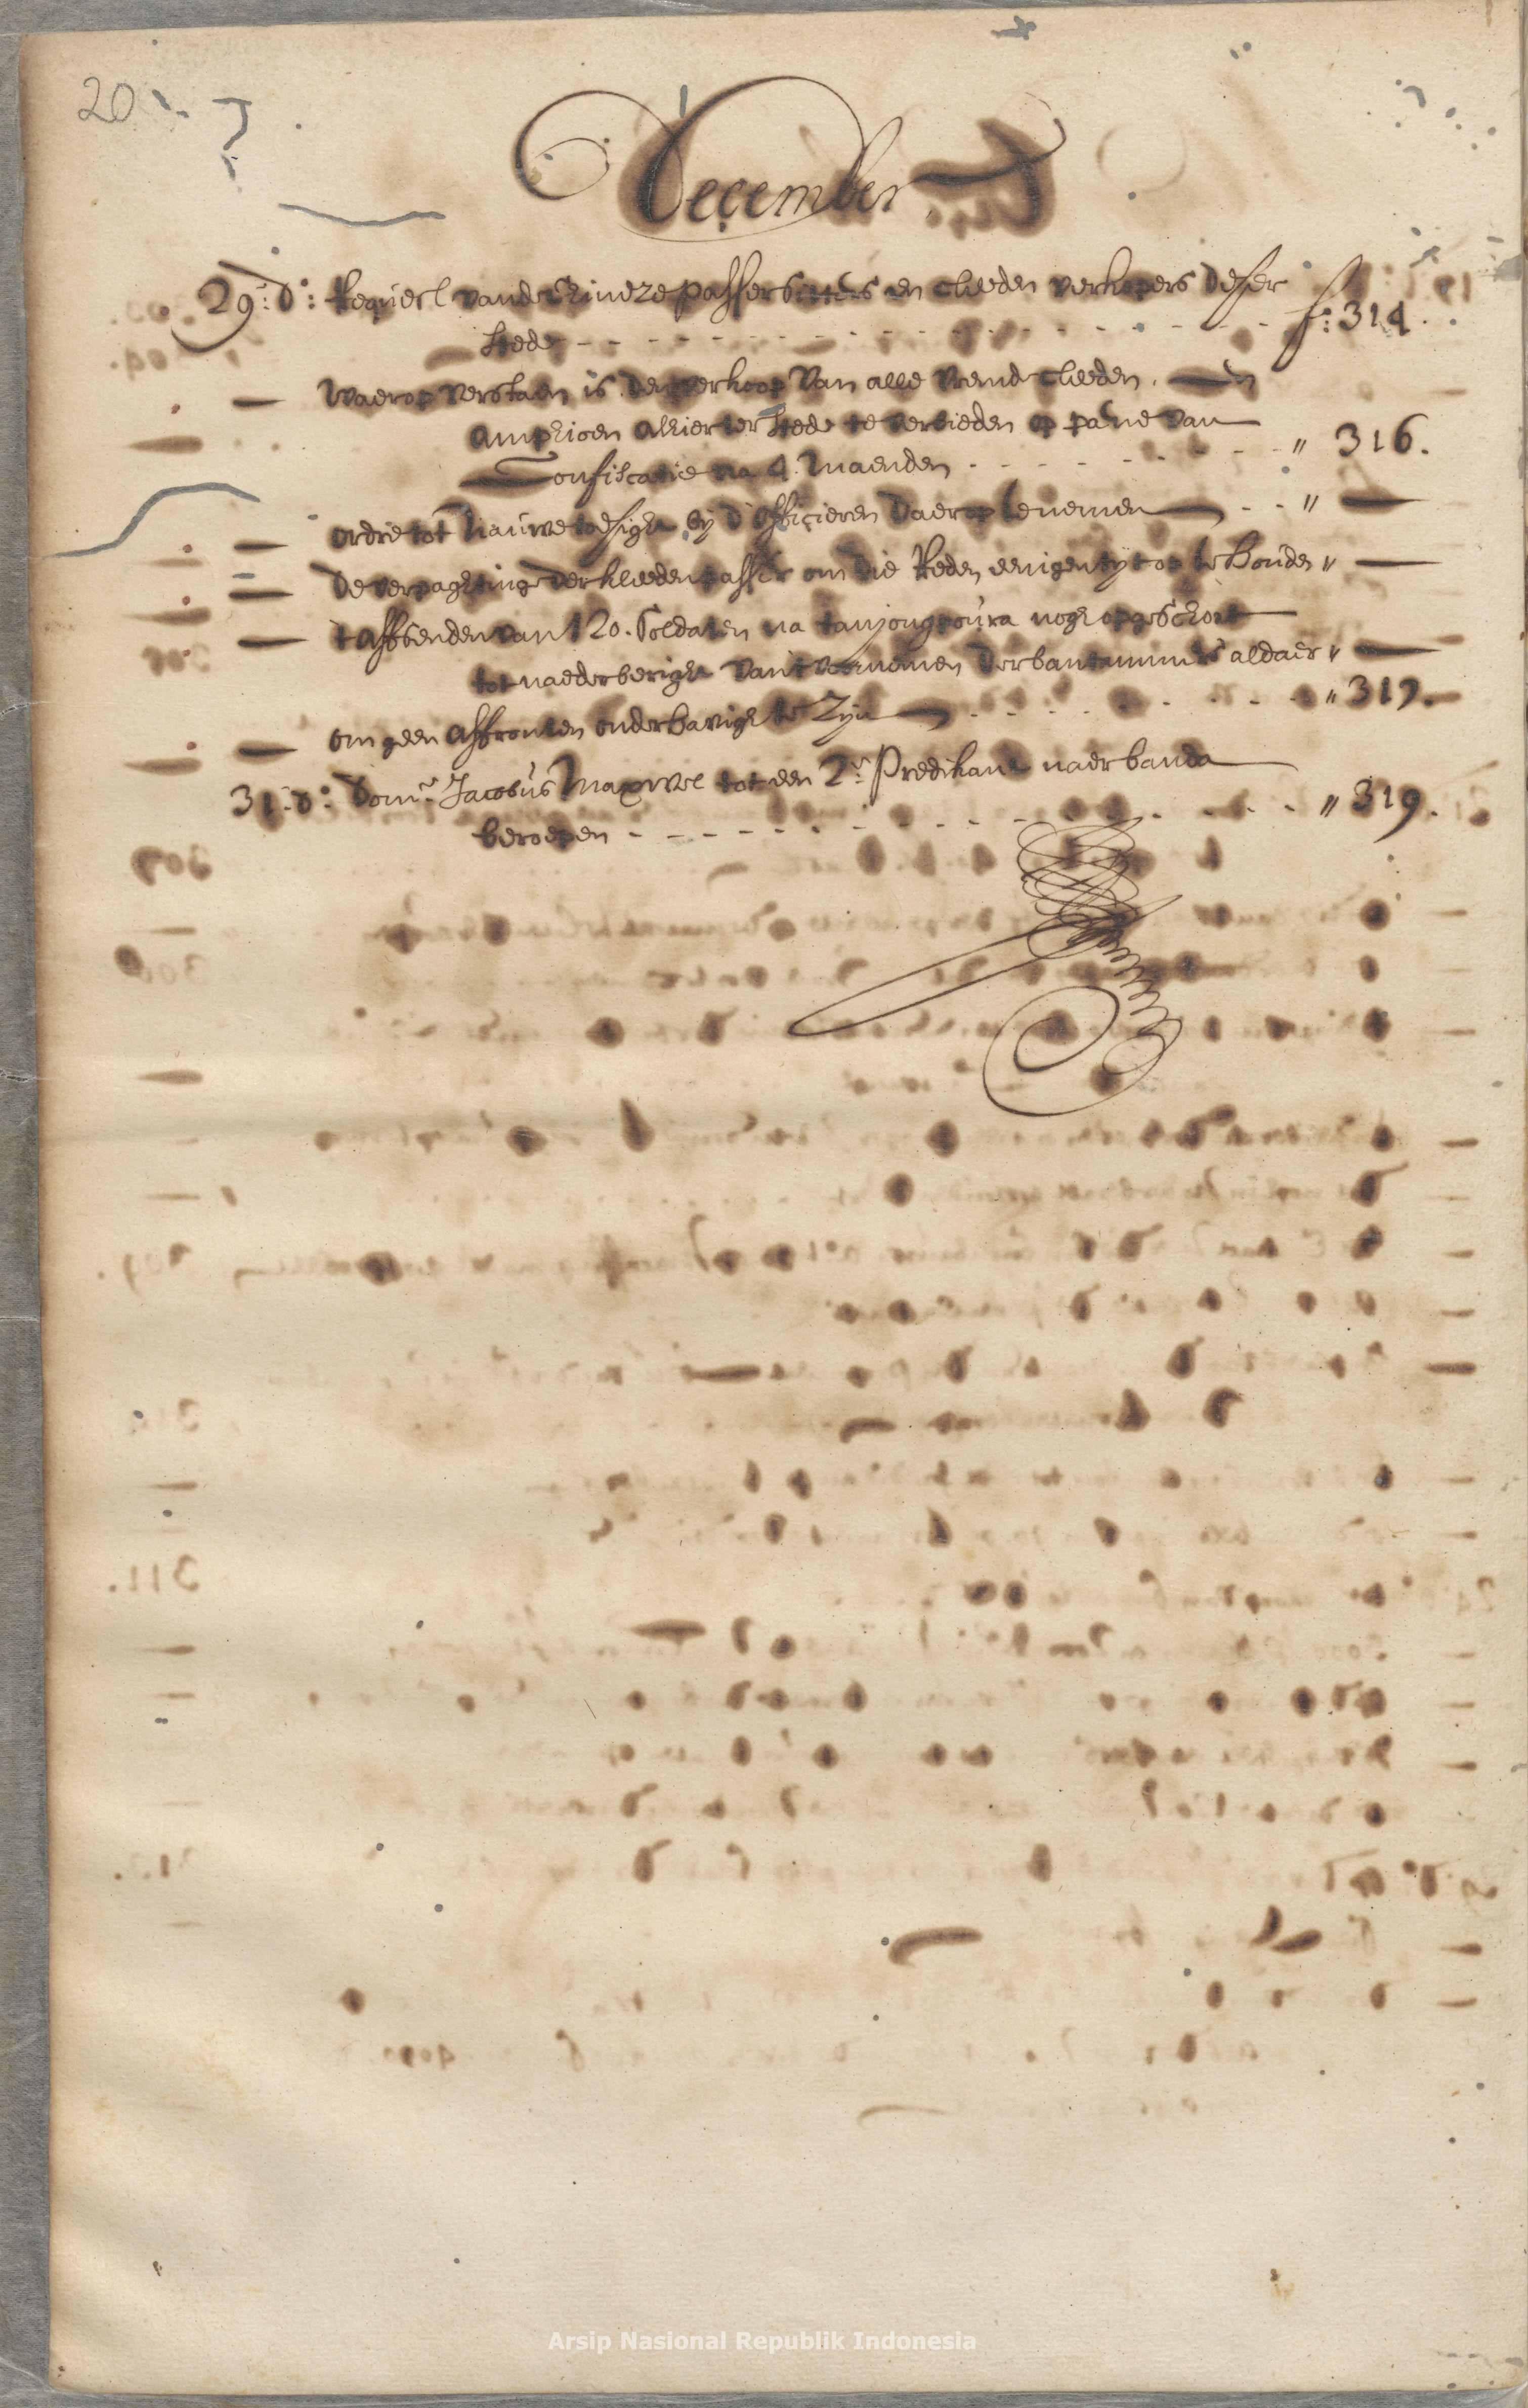 20
December
29:' d:o Request vande Chineze passersitters en cleeden verkopers deser
stede - - - - - - - - - - - - - f:o 314.
— Waerop verstaen is den verkoop van alle vremde cleeden. en
amphioen alhier ter stede te verbieden op pæne van
Confiscatie na 4. maenden - - - - - - - - " 316.
— ordre tot nauwe toesight bij d' officieren daerop te nemen — - - " —
— de verpaghting der kleeden passer om die Reden eenigen tijt op te houden " —
— t affsenden van 120. Soldaten na tanjongpoura nogh opgeschort
tot naeder berigt van't vernemen der bantammers aldaer " —
— om geen affronten onderhavigh te Zijn — - - - - - - - " 317.
31:' d:o Dom:e Jacobus Maxwel tot den 2:e Predikant naer banda
beroepen - - - - - - - - - - - - - - " 319.
Arsip Nasional Republik Indonesia